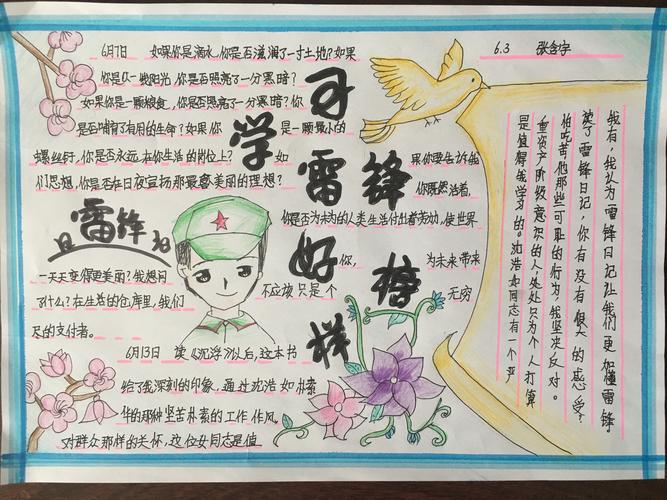 学习雷锋好榜样
6月7日 如果你是滴水,你是否滋润了一寸土地?如果
你是一线阳光,你是否照亮了一分黑暗?
如果你是一颗粮食,你是否照亮了一分黑暗?你
是否哺育了有用的生命?如果你 是一颗最小的
螺丝钉,你是否永远在你生活的岗位上? 如 果你要告诉我
们思想,你是否在日夜宣扬那最美丽的理想? 你既然活着,
你是否为未为的人类生活付出着劳动,使世界
雷锋日记
一天天变得更美丽?我想问 你, 为未来带来
了什么?在生活的仓库里,我们 不应该只是个 无穷
尽的支付者。
6月13日 读《沉浮》以后,这本书
给了我深刻的印象,通过沈浩如朴素
华的那种坚苦朴素的工作作风,
对群众那样的关怀,这位女同志是值
6.3 张含宇
我有,我认为雷锋日记让我们更加懂雷锋
读了雷锋日记,你有没有很大的感受?
怕吃苦他那些可耻的行为,我坚决反对。
重资产阶级意识的人,处处只为个人打算
是值得我学习的。沈浩如同志有一个严